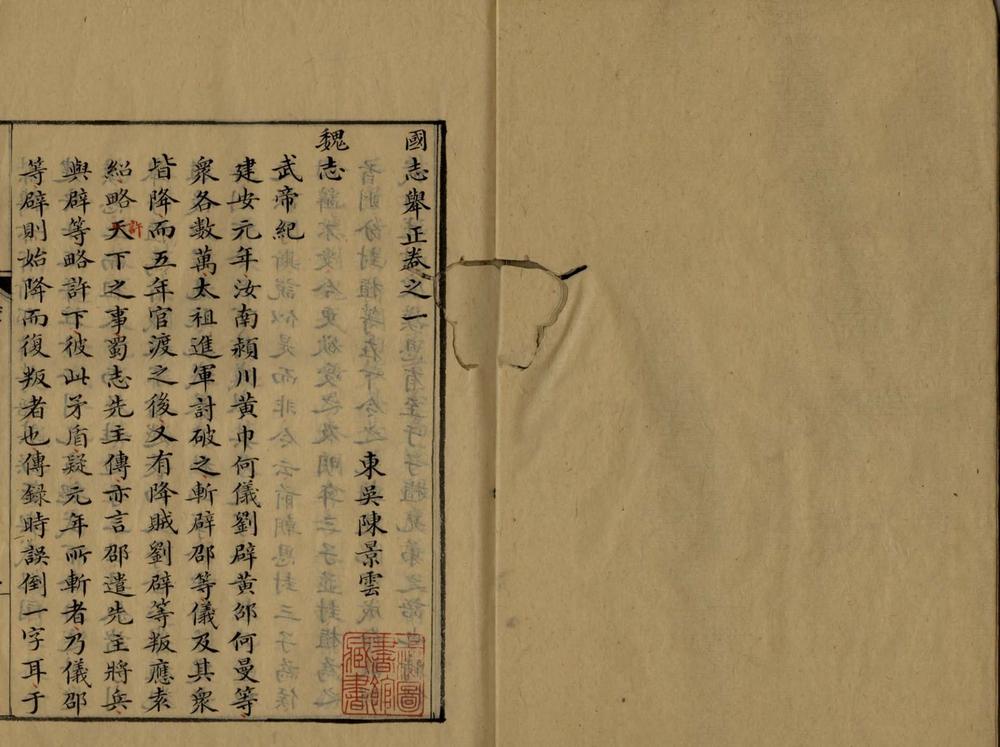 國志舉正卷之一
東吳陳景雲
魏志
武帝紀
建安元年汝南潁川黃巾何儀劉辟黃邵何曼等
衆各數萬太祖進軍討破之斬辟邵等儀及其衆
皆降而五年官渡之後又有降賊劉辟等叛應袁
紹略天下之事蜀志先主傳亦言邵遣先主將兵
許
與辟等略許下彼此矛盾疑元年所斬者乃儀邵
等辟則始降而復叛者也傳録時誤倒一字耳于
圖
書館
藏書